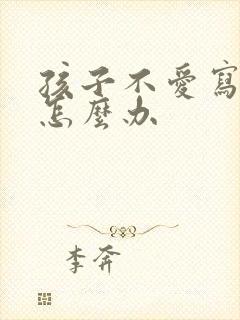 孩子不愛寫
怎麼办
李奔